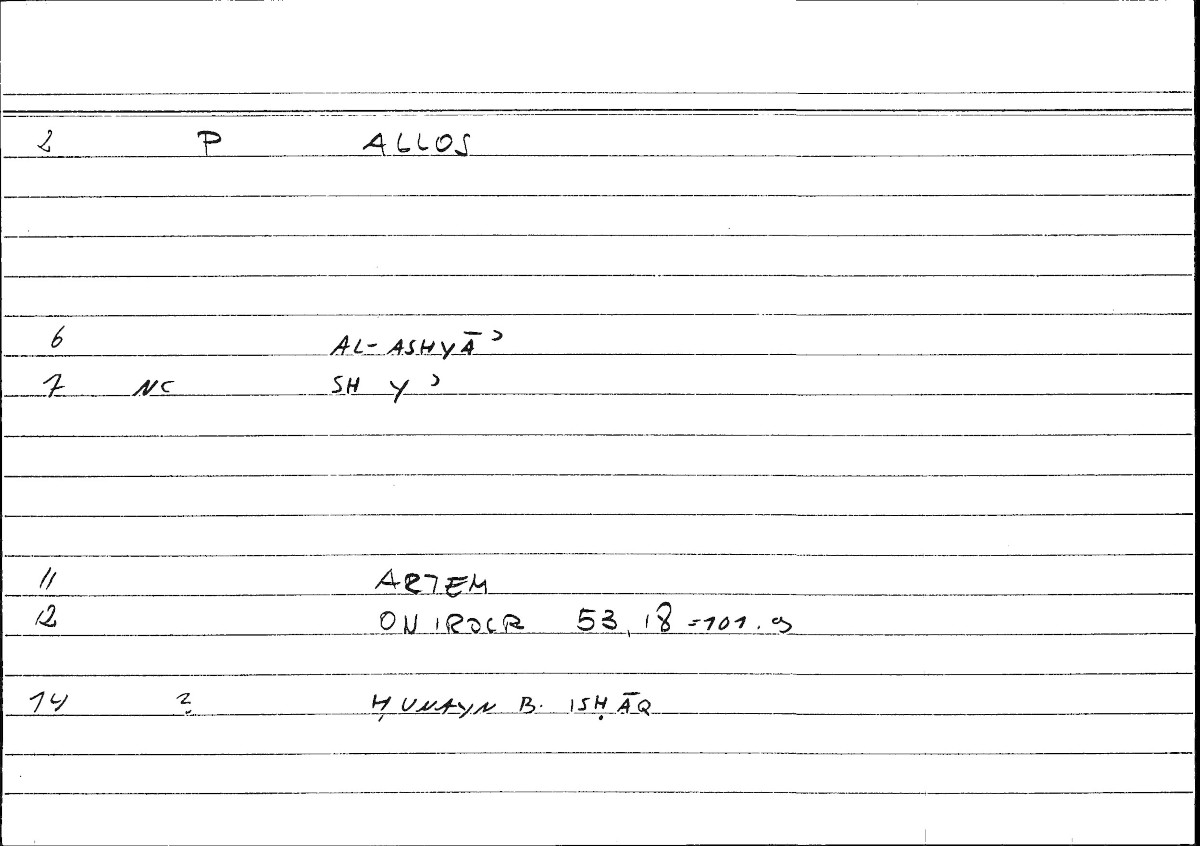 2 P ALLOS
6 AL-ASHYĀʾ
7 NC SH Y ʾ
11 ARTEM
12 ONIROCR 53,18 = 101.9
14 ? ḤUNAYN B. ISḤĀQ